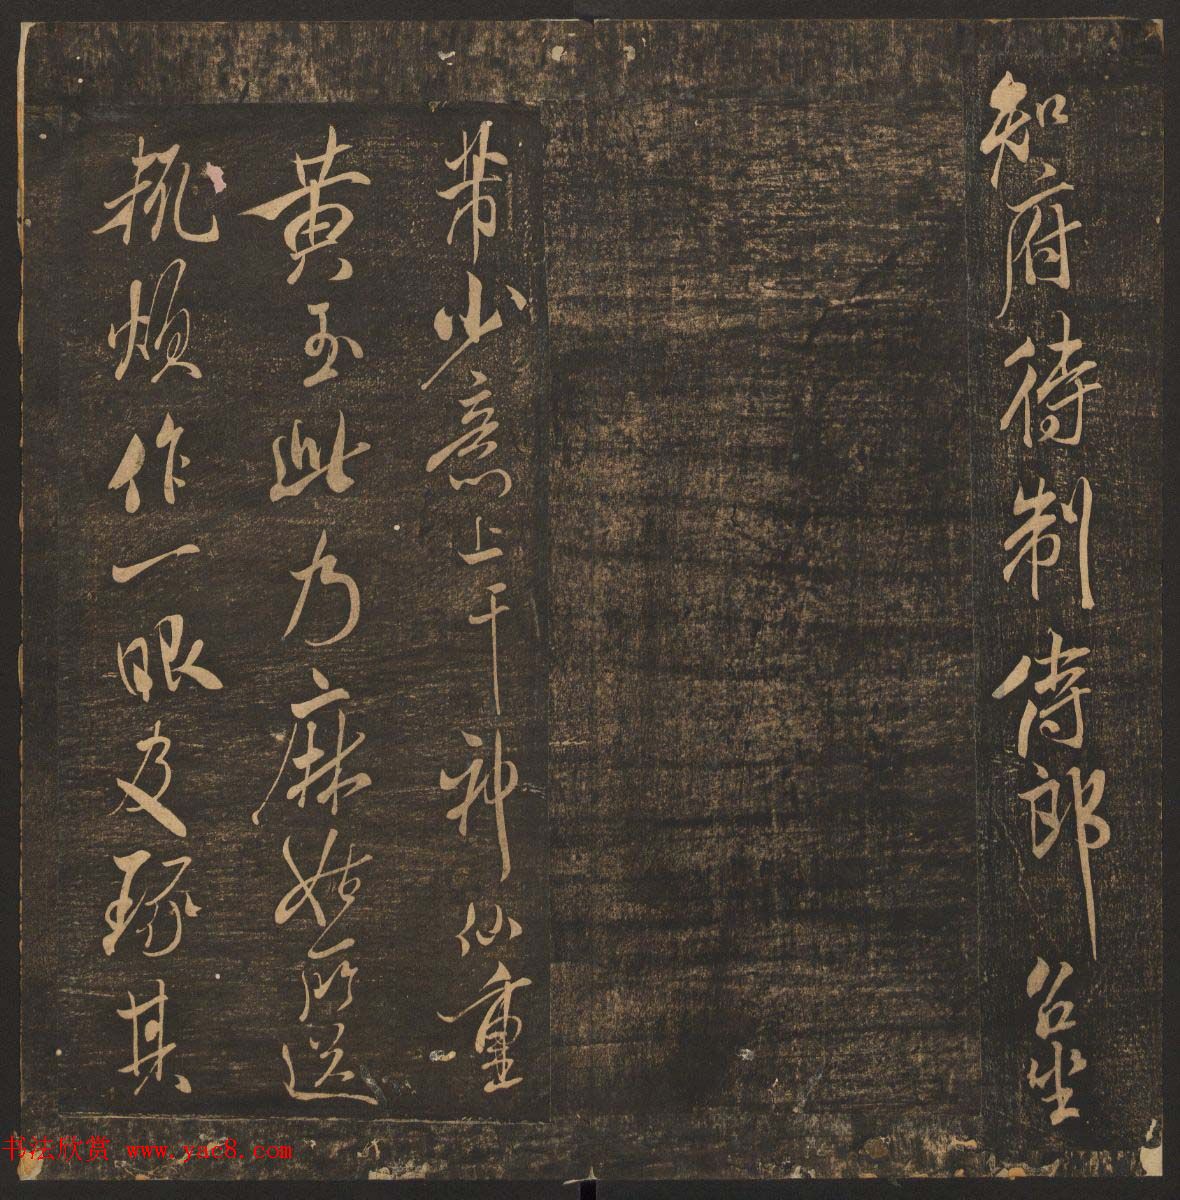 知府待制侍郎台坐
芾少意上干神仙重
黄玉此乃麻姑所送
煩作一眼及琢其
书法欣赏 www.yac8.com